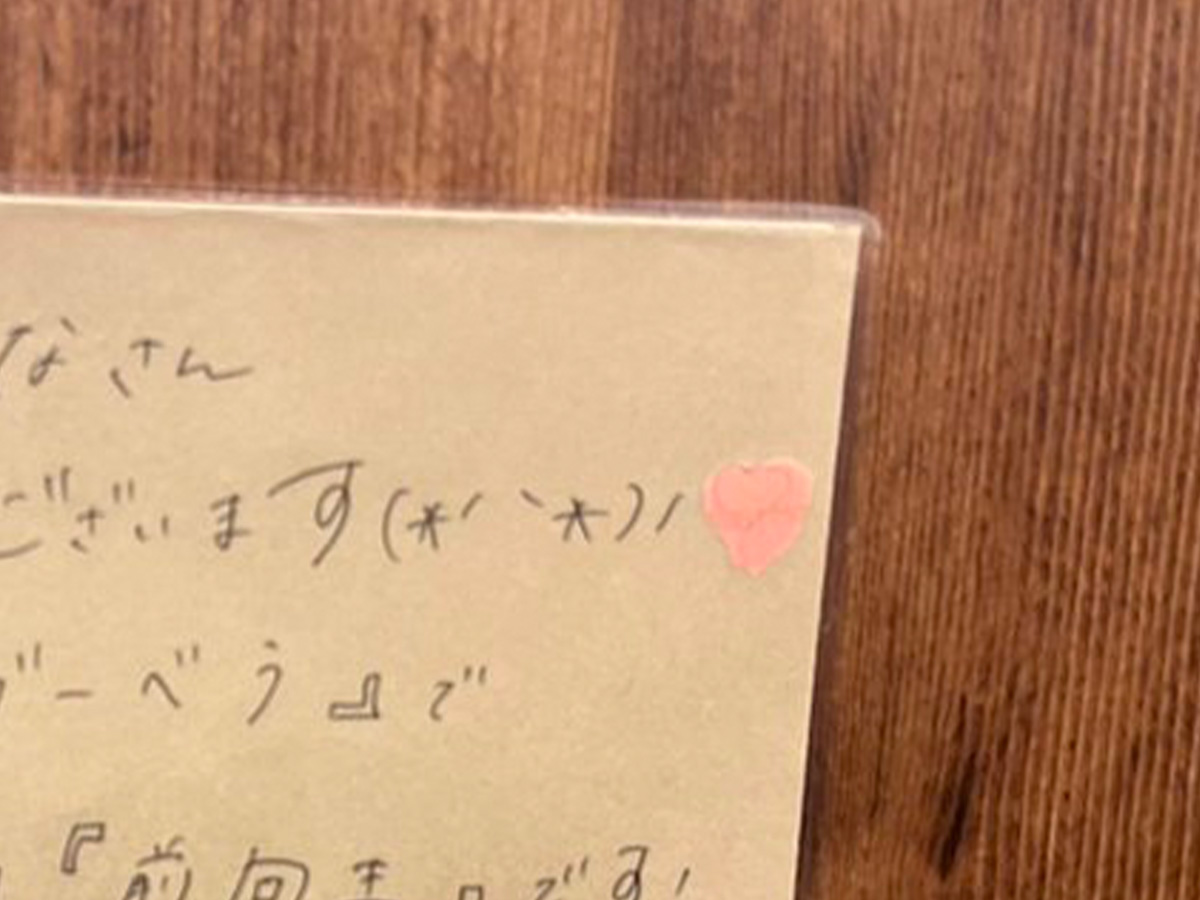 なさん
ございます(*´`*)ノ
ーべう』で
『前向き』です!